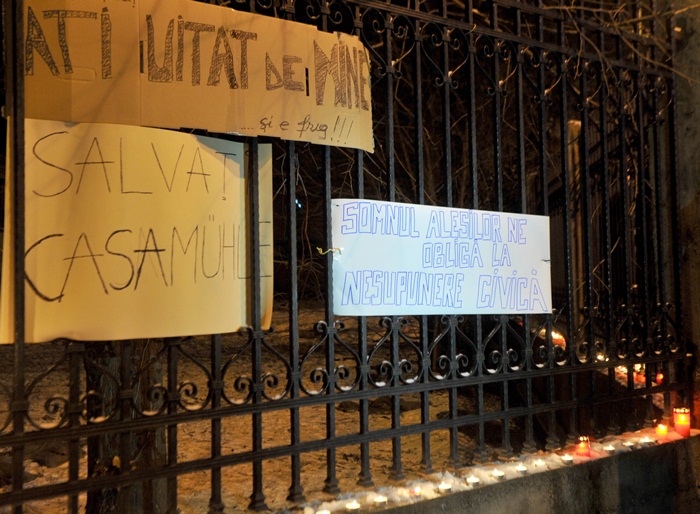 AȚI UITAT DE MINE
...și e frig!!!
SALVAȚI
CASA MÜHLE
SOMNUL ALEȘILOR NE
OBLIGĂ LA
NESUPUNERE CIVICĂ